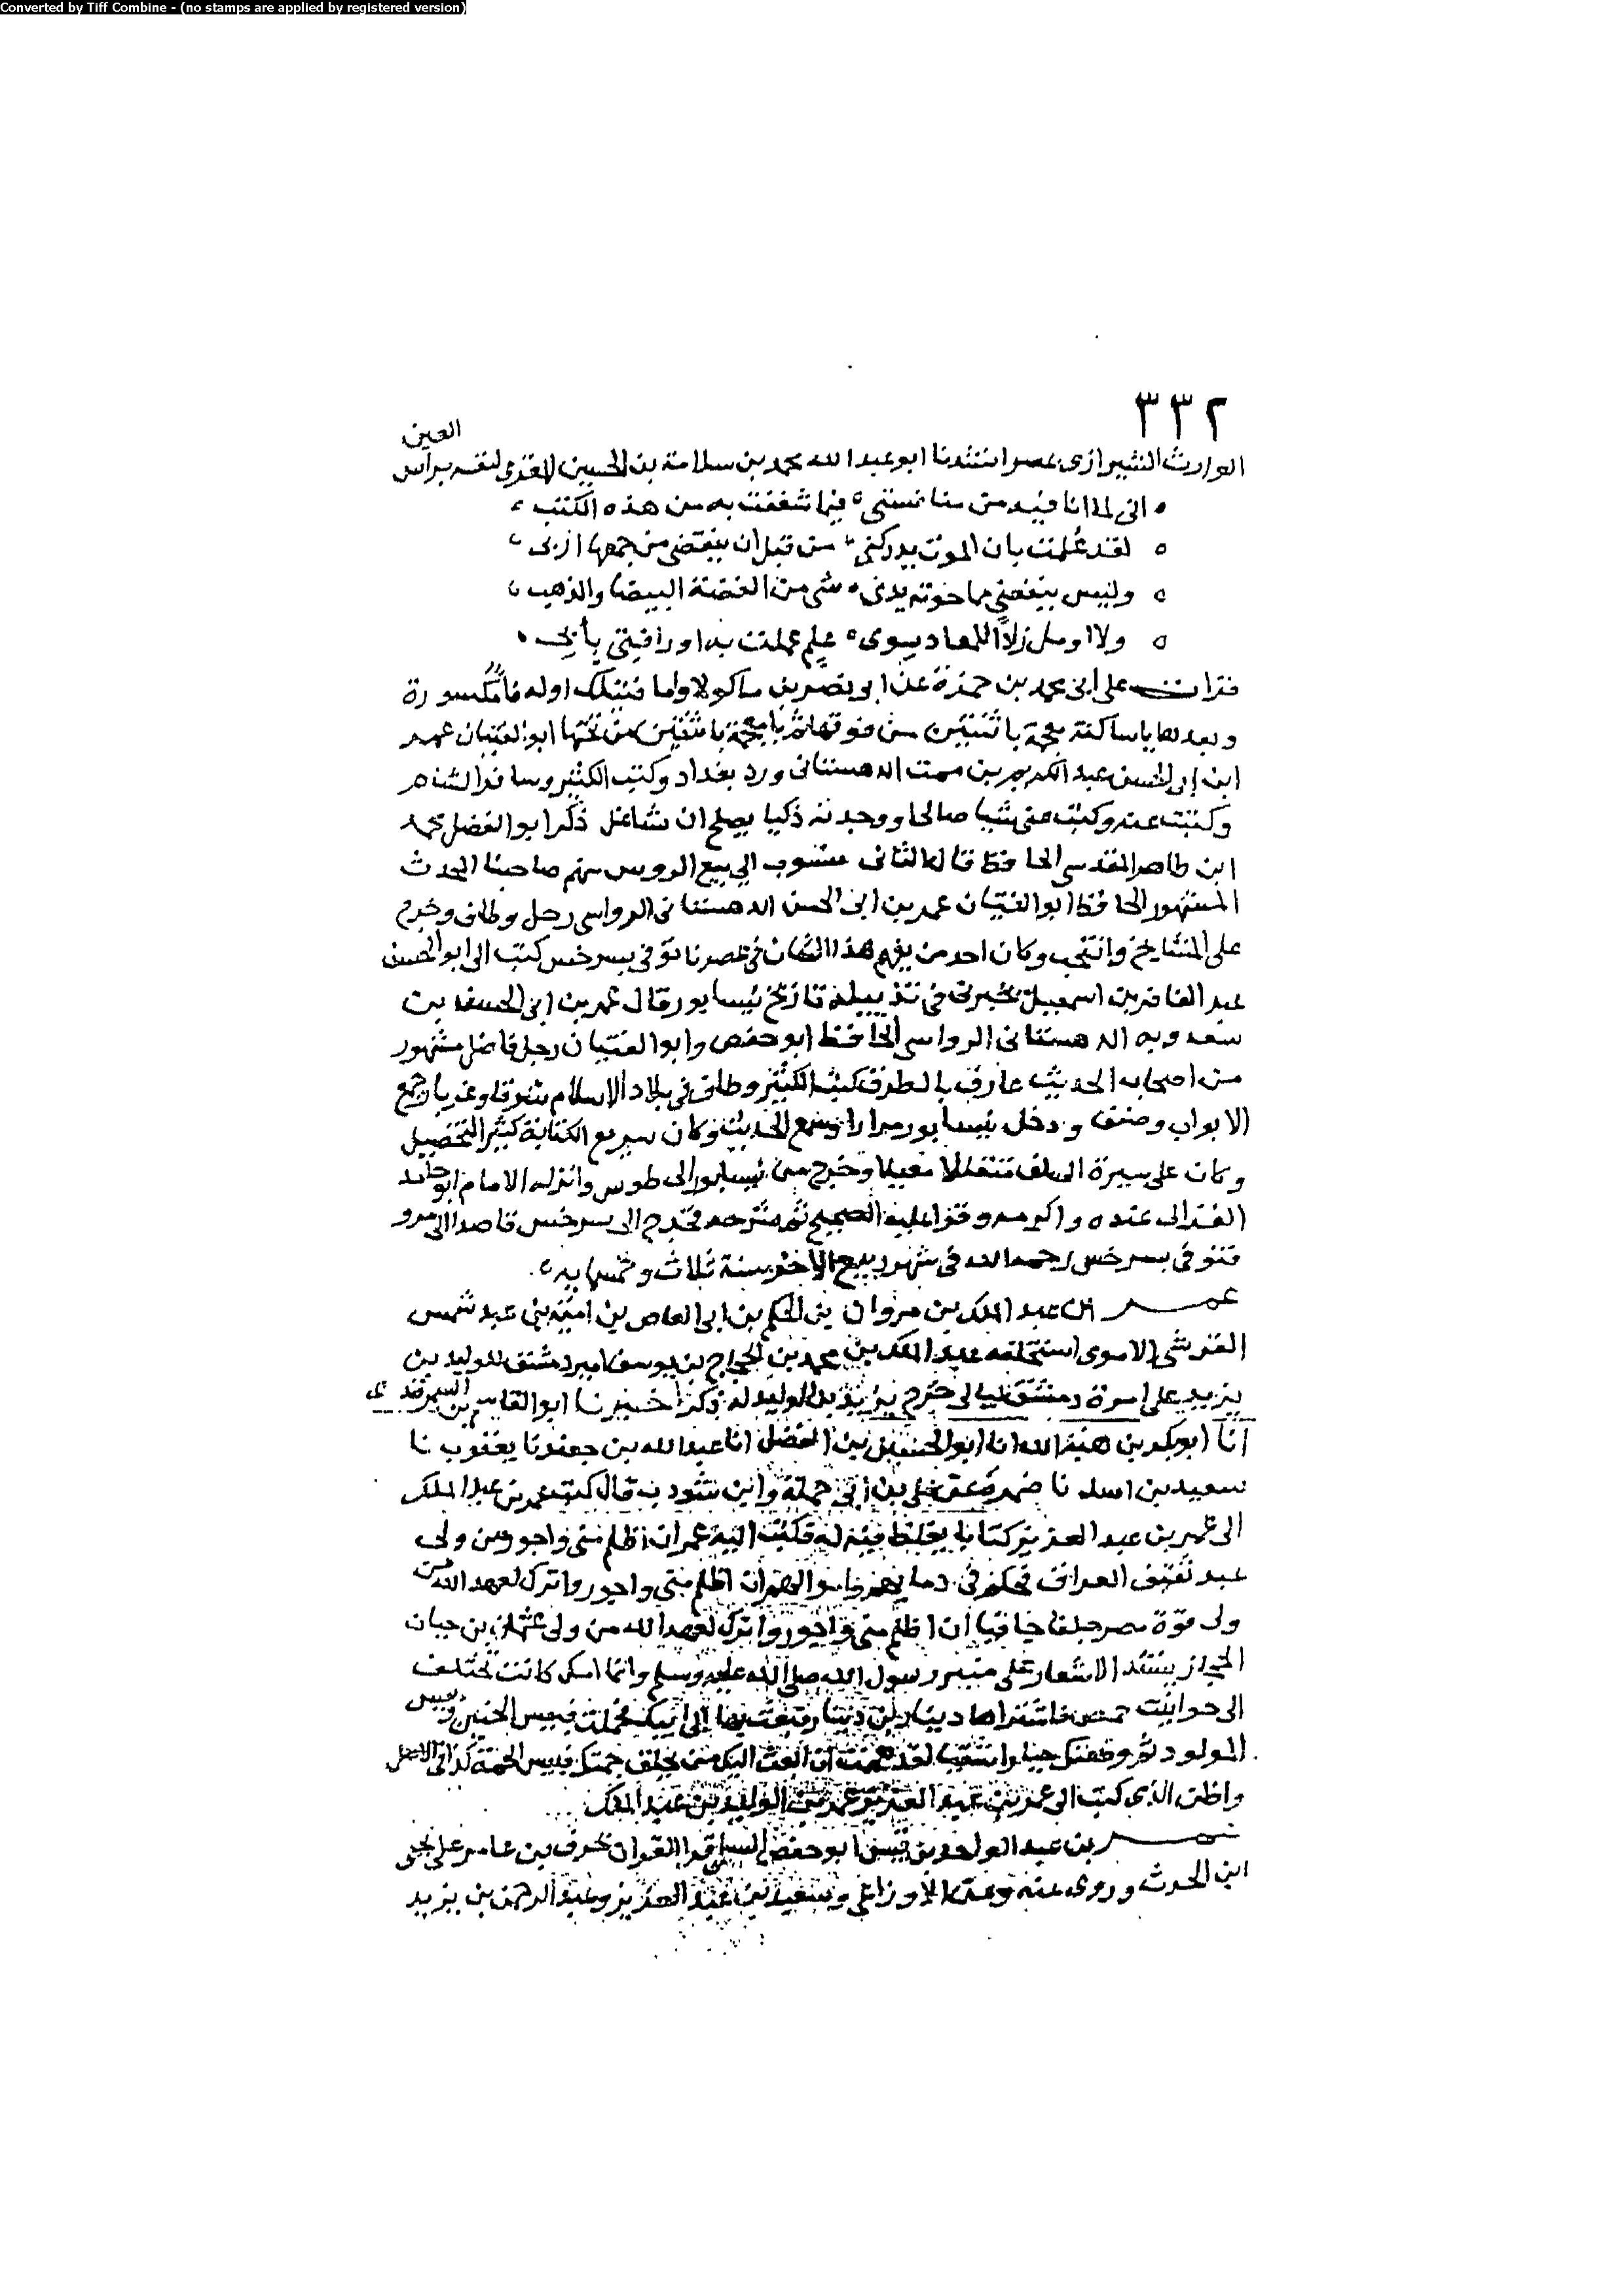 Converted by Tiff Combine - (no stamps are applied by registered version)
٣٣٢
العين
الوارث الشيرازى بمصر انشدنا ابو عبد الله محمد بن سلامة بن الحسين المقرى لنفسه براس
انى لما انا فيه من منافستى فيما شغفت به من هذه الكتب
لقد علمت بان الموت يدركنى من قبل ان ينقضى من جمعها اربى
وليس ينفعنى مما حوته يدى شى من الفضة البيضا والذهب
ولا اومل زادا للمعاد سوى علم عملت به او رافتى بأبى
قرات على ابى محمد بن حمزة عن ابى نصر بن ماكولا واما فتيك اوله فا مكسورة
وبعدها يا ساكنة معجمة باثنتين من فوقها ثم يا معجمة باثنتين من تحتها ابو الفتيان عمر
ابن ابى الحسن عبد الكريم بن ممت الدهستانى ورد بغداد وكتب الكثير وسافر الشام
وكتبت عنه وكتب عنى شيا صالحا ووجدته ذكيا يصلح ان تشاغل ذكر ابو الفضل محمد
ابن طاهر المقدسى الحافظ قال الثانى منسوب الى بيع الروس منهم صاحبنا المحدث
المشهور الحافظ ابو الفتيان عمر بن ابى الحسن الدهستانى الرواسى رحل وطاف وخرج
على المشايخ وانتخب وكان احد من يفهم هذا الشان فى عصرنا توفى بسرخس كتب الى ابو الحسن
عبد الغافر بن اسمعيل يخبرنى فى تذييله تاريخ نيسابور قال عمر بن ابى الحسن بن
سعدويه الدهستانى الرواسى الحافظ ابو حفص وابو الفتيان رجل فاضل مشهور
من اصحاب الحديث عارف بالطرق كتب الكثير وطاف فى بلاد الاسلام شرقا وغربا وجمع
الابواب وصنف ودخل نيسابور مرارا وسمع الحديث وكان سريع الكتابة كثير التحصيل
وكان على سيرة السلف متقللا معيلا وخرج من نيسابور الى طوس وانزله الامام ابو حامد
الغزالى عنده واكرمه وقرا عليه الصحيح ثم شرحه فخرج الى سرخس قاصدا الى مرو
فتوفى بسرخس رحمه الله فى شهر ربيع الاخر سنة ثلاث وخمسمايه
عمر بن عبد الملك بن مروان بن الحكم بن ابى العاص بن امية بن عبد شمس
القرشى الاموى استخلفه عبد الملك بن محمد بن الحجاج بن يوسف امير دمشق للوليد بن
يزيد على امرة دمشق ليالى خرج يزيد بن الوليد له ذكر اخبرنا ابو القاسم بن السمرقندى
انا ابو بكر بن هبة الله انا ابو الحسين بن الفضل انا عبد الله بن جعفر نا يعقوب نا
سعيد بن اسد نا ضمرة عن على بن ابى حملة وابن شوذب قال كتب عمر بن عبد الملك
الى عمر بن عبد العزيز كتابا يغلظ فيه له فكتب اليه عمر ان اظلم منى واجور من ولى
عبد ثقيف العراق فحكم فى دمايهم واموالهم ان اظلم منى واجور واترك لعهد الله من
ولى قرة مصر جلفا جافيا ان اظلم منى واجور واترك لعهد الله من ولى عثمان بن حيان
الحجاز ينشد الاشعار على منبر رسول الله صلى الله عليه وسلم وانما امك كانت تختلف
الى حوانيت حمص فاشتراها دينار بن دينار فبعث بها الى ابيك فحملت فبيس الجنين وبيس
المولود ثم وضعتك جبارا شقيا لقد هممت ان ابعث اليك من يحلق جمتك فبيس الجمة كذا فى الاصل
واظن الذى كتب الى عمر بن عبد العزيز عمر بن الوليد بن عبد الملك
عمر بن عبد الواحد بن قيس ابو حفص السلمى قرا القران بحرف بن عامر على يحيى
ابن الحرث وروى عنه وعن الاوزاعى وسعيد بن عبد العزيز وعبد الرحمن بن يزيد